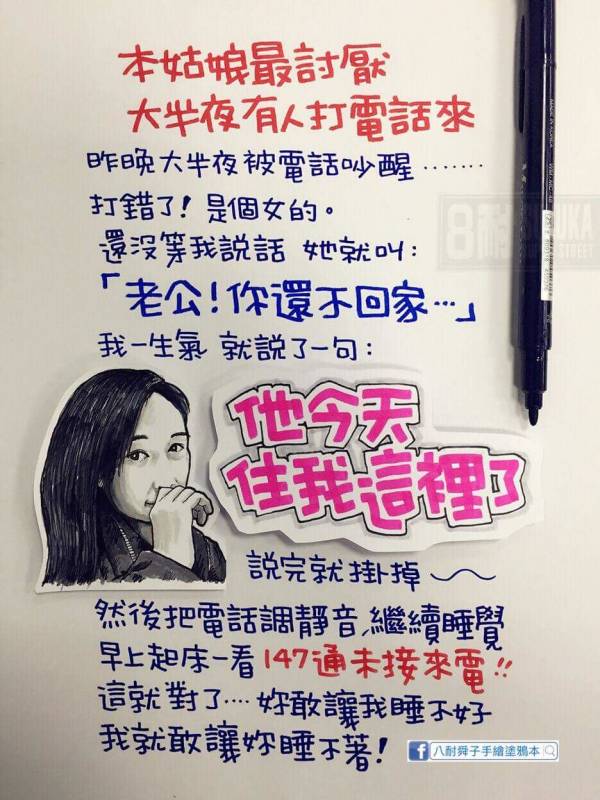 本姑娘最討厭
大半夜有人打電話來
昨晚大半夜被電話吵醒‥‥‥‥
打錯了! 是個女的。
還沒等我說話 她就叫:
「老公!你還不回家…」
我一生氣 就說了一句:
他今天
住我這裡了
說完就掛掉～～
然後把電話調靜音,繼續睡覺
早上起床一看 147通未接來電!!
這就對了‥‥ 妳敢讓我睡不好
我就敢讓妳睡不著!
八耐舜子手繪塗鴉本